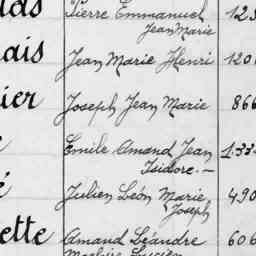 Pierre Emmanuel
Jean Marie
ais Jean Marie Henri 120
ier Joseph Jean Marie 866
Emile Amand Jean 133
Isidore. —
Julien Léon Marie 490
Joseph
ette Amand Léandre 606